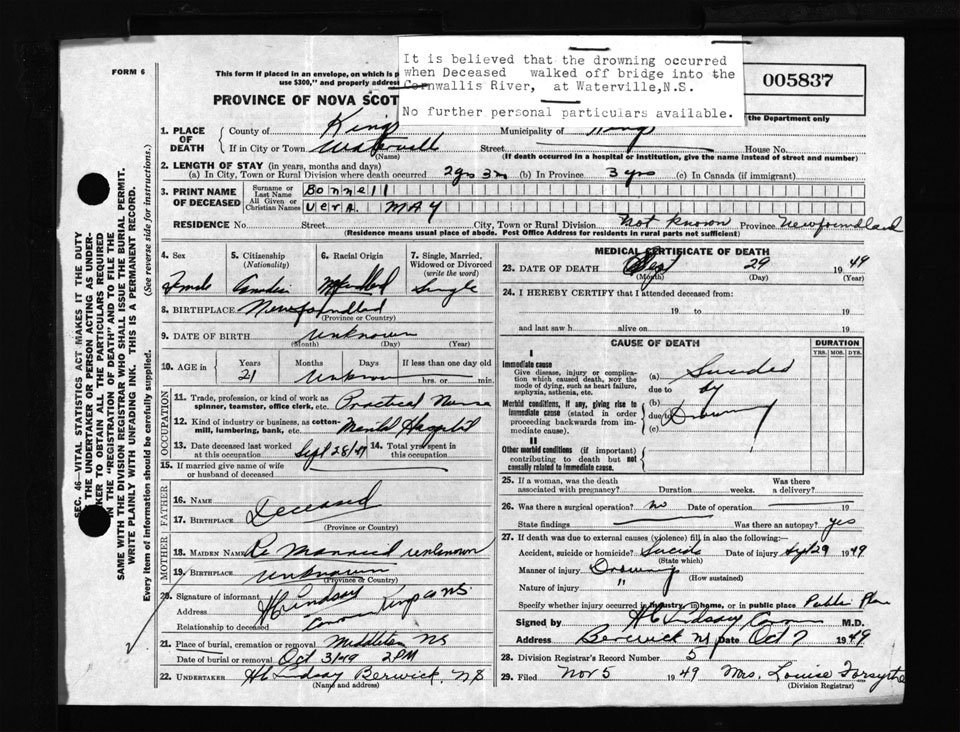 It is believed that the drowning occurred
when Deceased walked off bridge into the
Cornwallis River, at Waterville,N.S.
No further personal particulars available.
FORM 6
This form if placed in an envelope, on which is p
$300," and properly addre
005837
PROVINCE OF NOVA SCOT
the Department only
1. PLACE OF DEATH
County of Kings Municipality of Kings
If in City or Town Waterville Street House No.
(Name) (If death occurred in a hospital or institution, give the name instead of street and number)
2. LENGTH OF STAY (in years, months and days)
(a) In City, Town or Rural Division where death occurred 2 yrs 3 m (b) In Province 3 yrs (c) In Canada (if immigrant)
3. PRINT NAME OF DECEASED
Surname or Last Name Bonnell
All Given or Christian Names Vera. MAY
RESIDENCE No. Street City, Town or Rural Division Not Known Province Newfoundland
(Residence means usual place of abode. Post Office Address for residents in rural parts not sufficient)
4. Sex 5. Citizenship (Nationality) 6. Racial Origin 7. Single, Married, Widowed or Divorced (write the word)
Single
8. BIRTHPLACE Newfoundland
(Province or Country)
9. DATE OF BIRTH unknown
(Month) (Day) (Year)
10. AGE in Years Months Days If less than one day old
21 Unknown hrs. or min.
OCCUPATION
11. Trade, profession, or kind of work as spinner, teamster, office clerk, etc. Practical Nurse
12. Kind of industry or business, as cotton-mill, lumbering, bank, etc. Mental Hospital
13. Date deceased last worked at this occupation Sept 28/49 14. Total yrs. spent in this occupation
15. If married give name of wife or husband of deceased
FATHER
16. NAME Deceased
17. BIRTHPLACE
(Province or Country)
MOTHER
18. MAIDEN NAME Re Married unknown
19. BIRTHPLACE unknown
(Province or Country)
20. Signature of informant H C Lindsay
Address Kings Co NS.
Relationship to deceased Coroner
21. Place of burial, cremation or removal Middleton NS
Date of burial or removal Oct 3/49 2PM
22. UNDERTAKER H C Lindsay Berwick, NS
(Name and address)
MEDICAL CERTIFICATE OF DEATH
23. DATE OF DEATH Sept 29 1949
(Month) (Day) (Year)
24. I HEREBY CERTIFY that I attended deceased from:
19 to 19
and last saw h alive on 19
CAUSE OF DEATH DURATION
YRS. MOS. DYS.
I
Immediate cause
Give disease, injury or complication which caused death, NOT the mode of dying, such as heart failure, asphyxia, asthenia, etc.
(a) Suicided
due to by
Morbid conditions, if any, giving rise to immediate cause (stated in order proceeding backwards from immediate cause).
(b)
due to Drowning
(c)
II
Other morbid conditions (if important) contributing to death but not causally related to immediate cause.
25. If a woman, was the death associated with pregnancy? Duration weeks. Was there a delivery?
26. Was there a surgical operation? No Date of operation 19
State findings Was there an autopsy? yes
27. If death was due to external causes (violence) fill in also the following:—
Accident, suicide or homicide? Suicide Date of injury Sept 29 1949
(State which)
Manner of injury Drowning
(How sustained)
Nature of injury "
Specify whether injury occurred in industry, in home, or in public place Public Place
Signed by H C Lindsay Coroner M.D.
Address Berwick NS Date Oct 7 1949
28. Division Registrar's Record Number 5
29. Filed Nov 5 1949 Mrs. Louise Forsythe
(Division Registrar)
SEC. 46—VITAL STATISTICS ACT MAKES IT THE DUTY
OF THE UNDERTAKER OR PERSON ACTING AS UNDER-
TAKER TO OBTAIN ALL THE PARTICULARS REQUIRED
IN THE "REGISTRATION OF DEATH" AND TO FILE THE
SAME WITH THE DIVISION REGISTRAR WHO SHALL ISSUE THE BURIAL PERMIT.
WRITE PLAINLY WITH UNFADING INK. THIS IS A PERMANENT RECORD.
Every item of information should be carefully supplied. (See reverse side for instructions.)